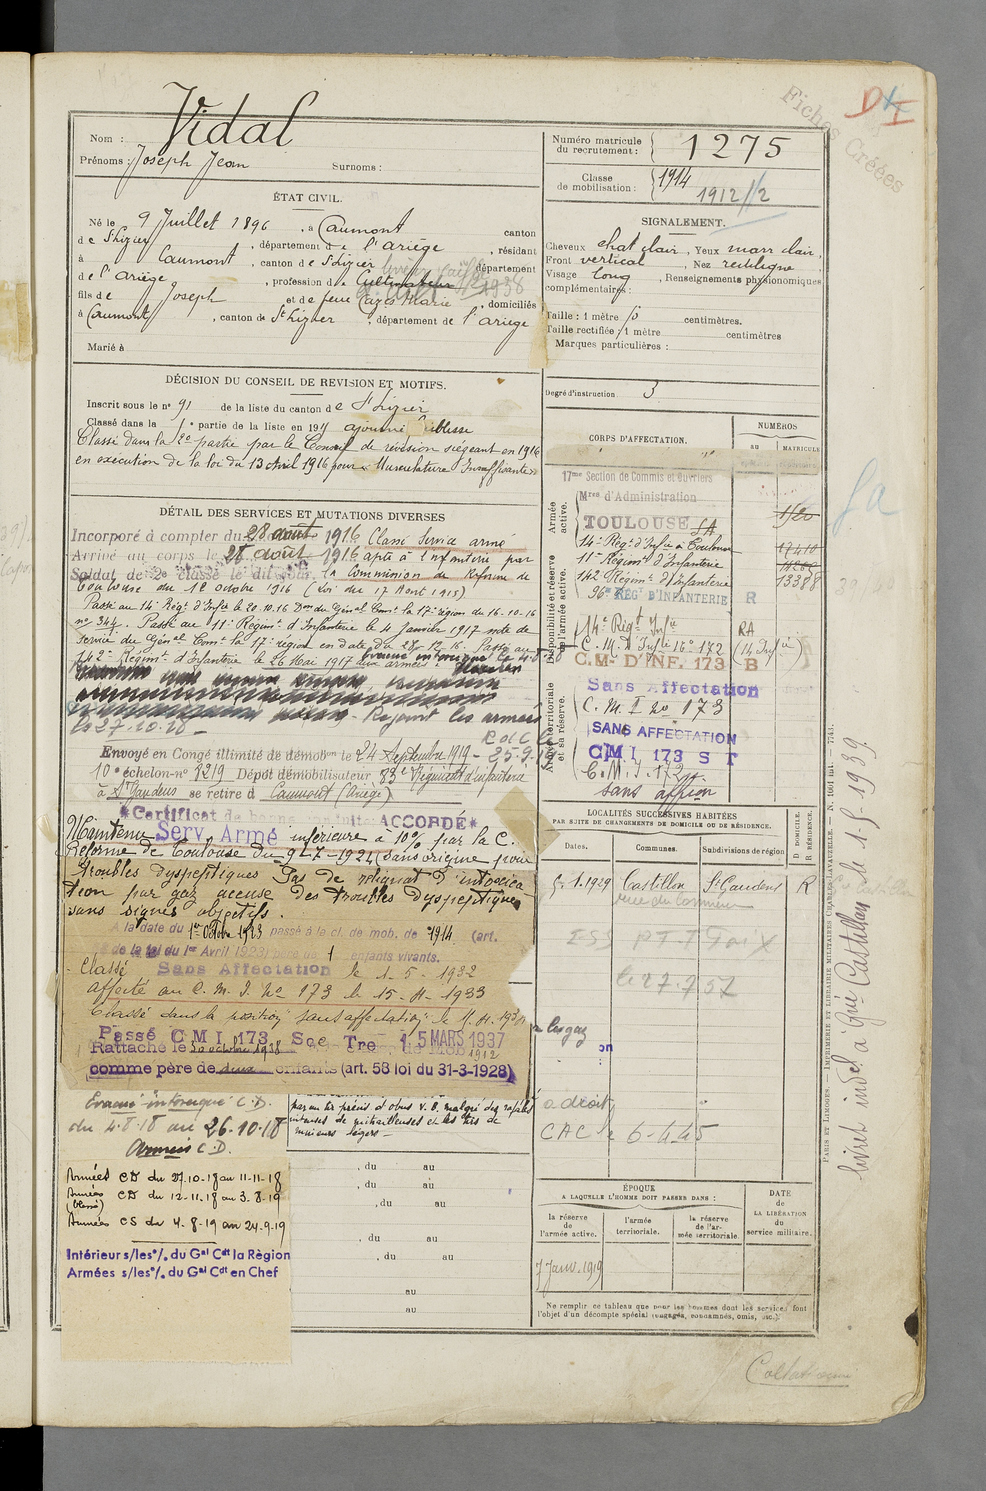 Fiches Créées
D I
Nom : Vidal
Prénoms : Joseph Jean Surnoms :
Numéro matricule du recrutement : 1275
Classe de mobilisation : 1914
1912/2
ÉTAT CIVIL.
Né le 9 Juillet 1896, à Caumont canton
de St Lizier, département de l'Ariège, résidant
à Caumont, canton de St Lizier département
de l'Ariège, profession de Cultivateur
1938
fils de Joseph et de feue Cazes Marie, domiciliés
à Caumont, canton de St Lizier, département de l'Ariège
Marié à
SIGNALEMENT.
Cheveux chat clair, Yeux marr clair,
Front vertical, Nez rectiligne
Visage long, Renseignements physionomiques
complémentaires :
Taille : 1 mètre 70 centimètres.
Taille rectifiée : 1 mètre centimètres
Marques particulières :
Degré d'instruction 3
DÉCISION DU CONSEIL DE REVISION ET MOTIFS.
Inscrit sous le n° 91 de la liste du canton de St Lizier
Classé dans la 1° partie de la liste en 191 ajourné faiblesse
Classé dans la 2e partie par le Conseil de révision siégeant en 1916
en exécution de la loi du 13 Avril 1916 pour Musculature Insuffisante
DÉTAIL DES SERVICES ET MUTATIONS DIVERSES
Incorporé à compter du 28 août 1916 Classé Service armé
Arrivé au corps le 28 août 1916 apte à l'infanterie par
Soldat de 2e classe le dit jour. la Commission de Réforme de
Toulouse du 12 octobre 1916 (Loi du 17 Août 1915)
Passé au 14e Régt d'Infie le 20.10.16 Don du Génal Comt la 17e région du 16-10-16
n° 344. Passé au 11e Régiment d'Infanterie le 4 Janvier 1917 note de
service du Génal Comt la 17e région en date du 28-12-16. Passé au
142e Régimt d'Infanterie le 26 Mai 1917 aux armées
Evacué intoxiqué le 4-8-18
Rejoint les armées
le 27-10-18
Envoyé en Congé illimité de démobon le 24 Septembre 1919 - 25-9-19
10e échelon n° 3219 Dépôt démobilisateur 83e Régiment d'infanterie
à St Gaudens se retire à Caumont (Ariège)
Certificat de bonne conduite ACCORDÉ
Maintenu Serv. Armé inférieure à 10% par la C.
Réforme de Toulouse du 9-7-1924 (sans origine) pour
troubles dyspeptiques Pas de reliquat d'intoxica
tion par gaz accuse des troubles dyspeptiques
sans signes objectifs.
A la date du 1er Octobre 1923 passé à la cl. de mob. de 1914 (art.
de la loi du 1er Avril 1923) père de 1 enfants vivants.
Classé Sans Affectation le 1-5-1932
affecté au C. M. I. No 173 le 15-11-1933
Classé dans la position sans affectation le
Passé C M I 173 Sec Tre 15 MARS 1937
Rattaché le 20 octobre 1938 de Mob 1912
comme père de deux enfants (art. 58 loi du 31-3-1928)
Evacué intoxiqué C.D.
du 4-8-18 au 26-10-18
Armées C.D.
Armées CD du 27-10-18 au 11-11-18
Armées CD du 12-11-18 au 3-8-19
(blessé)
Armées CS du 4-8-19 au 24-9-19
Intérieur s/les o/. du Gal Cdt la Région
Armées s/les o/. du Gal Cdt en Chef
par un tir précis d'obus V.B. malgré des rafales
intenses de mitrailleuses et les tirs de
minniers légers -
, du au
, du au
, du au
, du au
, du au
au
au
CORPS D'AFFECTATION.
NUMÉROS
au
MATRICULE
Armée active.
17me Section de Commis et Ouvriers
Mres d'Administration
TOULOUSE SA 1120
14e Régt d'Infie à Toulouse 17410
11e Régimt d'Infanterie
142e Régimt d'Infanterie 13388
96e REGt D'INFANTERIE R
Disponibilité et réserve de l'armée active.
14e Régt Infie RA
C. M. D'Infie 16e 172 (14 Infie)
C.M. D'INF. 173 B
Armée territoriale et sa réserve.
Sans Affectation
C. M. I no 173
SANS AFFECTATION
CMI 173 S T
C. M. I. 173
Sans affon
LOCALITÉS SUCCESSIVES HABITÉES
PAR SUITE DE CHANGEMENTS DE DOMICILE OU DE RÉSIDENCE.
D DOMICILE. R RÉSIDENCE.
Dates. Communes. Subdivisions de région
5.1.1929 Castillon St Gaudens R
ESS PTT Foix
le 27.7.57
le gaz
on
a droit
CAC le 6-4-45
ÉPOQUE
A LAQUELLE L'HOMME DOIT PASSER DANS :
la réserve de l'armée active.
l'armée territoriale.
la réserve de l'armée territoriale.
DATE de LA LIBÉRATION du service militaire.
7 Janv. 1919
Ne remplir ce tableau que pour les hommes dont les services font
l'objet d'un décompte spécial (engagés, condamnés, omis, etc.).
PARIS ET LIMOGES. — IMPRIMERIE ET LIBRAIRIE MILITAIRES CHARLES-LAVAUZELLE. — N. 1661 bis. — 7741.
Castillon le 1-5-1939